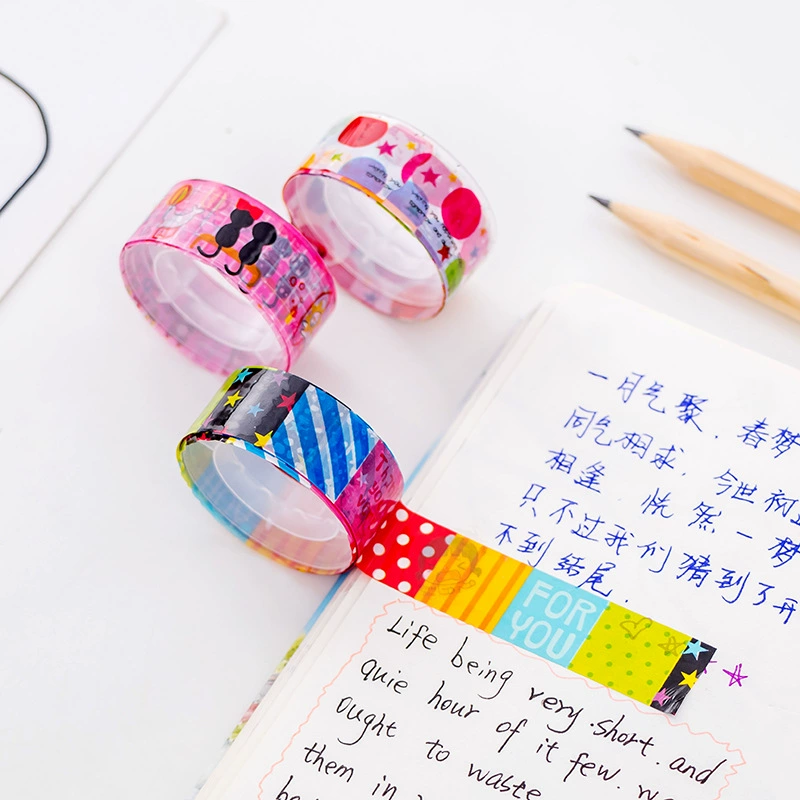 一月气聚.春梦
同气相求.今世初
相逢.恍然一梦
只不过我们猜到了开
不到结尾.
FOR
YOU
Life being very short.and
quie hour of it few. we
ought to waste
them in